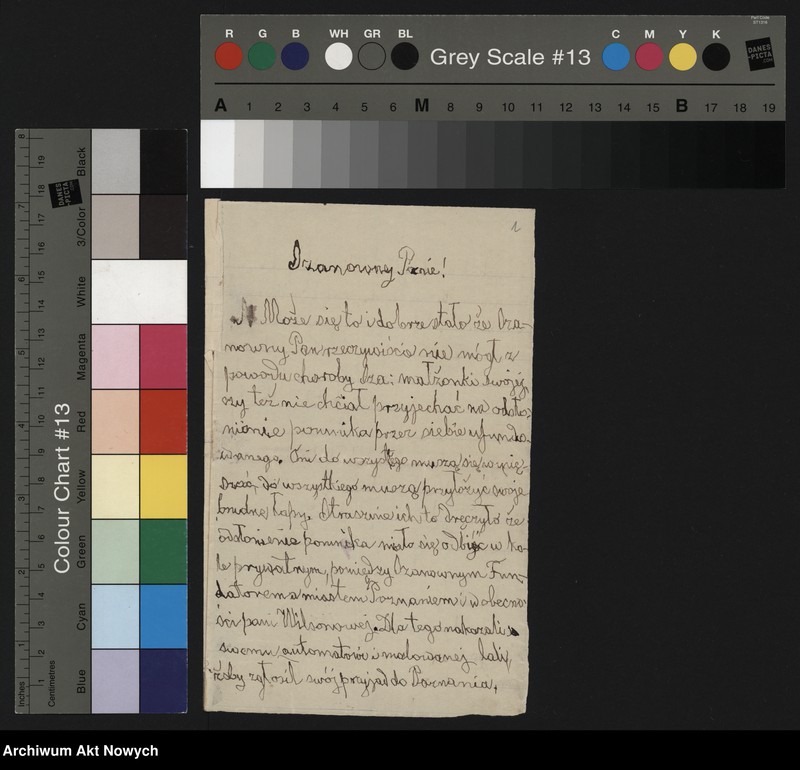 R G B WH GR BL Grey Scale #13 C M Y K
DANES-PICTA.COM
A 1 2 3 4 5 6 M 8 9 10 11 12 13 14 15 B 17 18 19
Colour Chart #13
Black
3/Color
White
Magenta
Red
Yellow
Green
Cyan
Blue
Inches
Centimetres
1
Szanowny Panie!
Może się to i dobrze stało że Sza-
nowny Pan rzeczywiście nie mógł z
powodu choroby Sza: małżonki swojej
czy też nie chciał przyjechać na odsło-
nienie pomnika przez siebie ufundo-
wanego. Oni do wszystkiego muszą się wpie-
do wszystkiego muszą przyłożyć swoje
brudne łapy. Strasznie ich to dręczyło że
odsłonienie pomnika miało się odbyć w ko-
le prywatnym, pomiędzy Szanownym Fun-
datorem a miastem Poznaniem i w obecno-
ści pani Wilsonowej. Dla tego nakazali
swemu automatowi malowanej lali,
żeby zgłosił swój przyjazd do Poznania.
Archiwum Akt Nowych